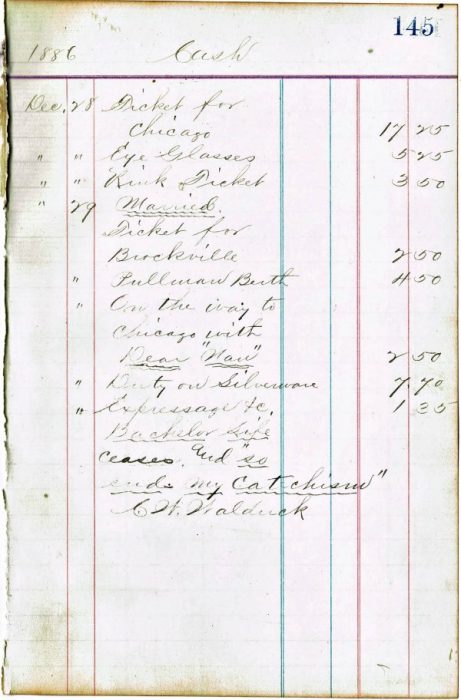 145
1886 Cash
Dec. 28 Ticket for
Chicago 17 25
" " Eye Glasses 5 25
" " Rink Ticket 3 50
" 29 Married.
Ticket for
Brockville 2 50
" Pullman Berth 4 50
" On the way to
Chicago with
Dear "Nan" 2 50
" Duty on Silverware 7.70
" Expressage &c. 1 35
Bachelor Life
ceases. and "so
ends my Catchism"
C W. Walduck